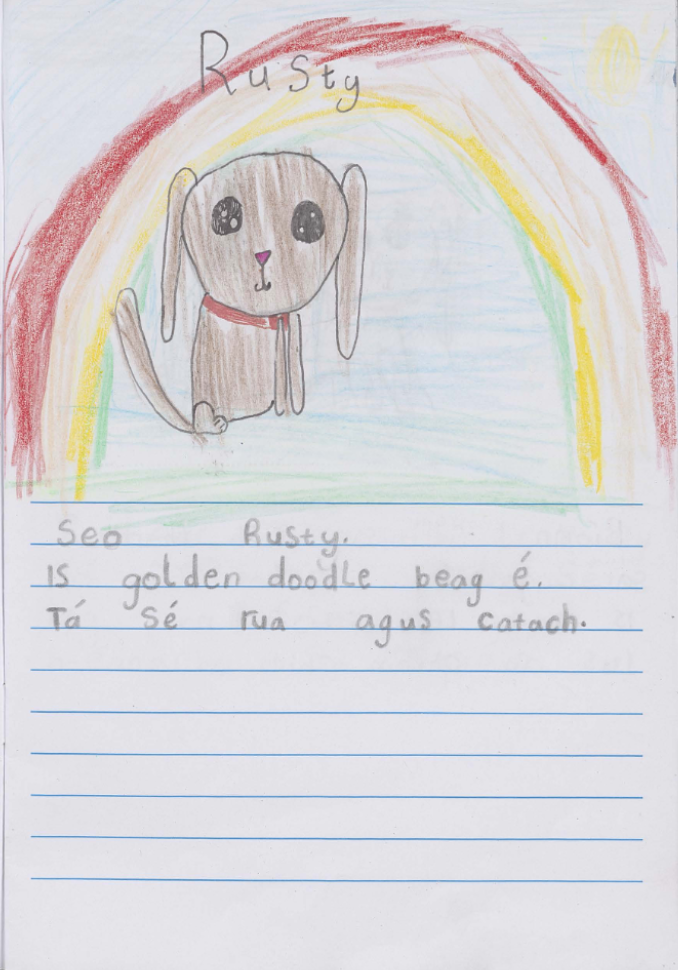 Rusty
Seo Rusty.
Is golden doodle beag é.
Tá Sé rua agus catach.